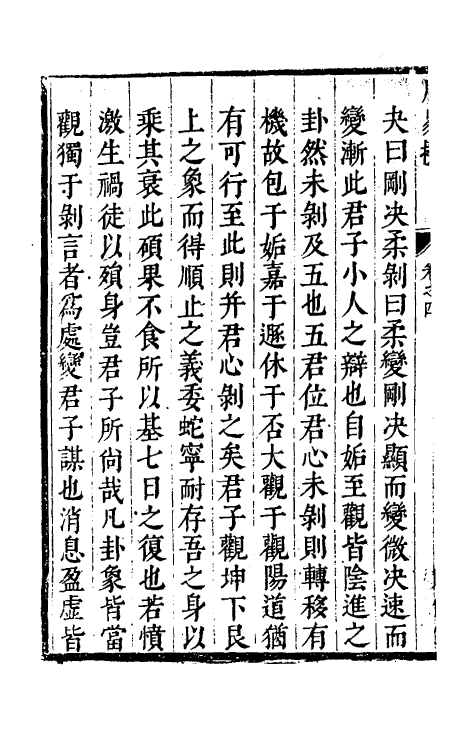 夬曰剛决柔剝曰柔變剛决顯而變微决速而
變漸此君子小人之辯也自姤至觀皆陰進之
卦然未剝及五也五君位君心未剝則轉移有
機故包于姤嘉于遯休于否大觀于觀陽道猶
有可行至此則并君心剝之矣君子觀坤下艮
上之象而得順止之義委蛇寧耐存吾之身以
乘其衰此碩果不食所以基七日之復也若憤
激生禍徒以殞身豈君子所尙哉凡卦象皆當
觀獨于剝言者爲處變君子謀也消息盈虛皆
卷之四